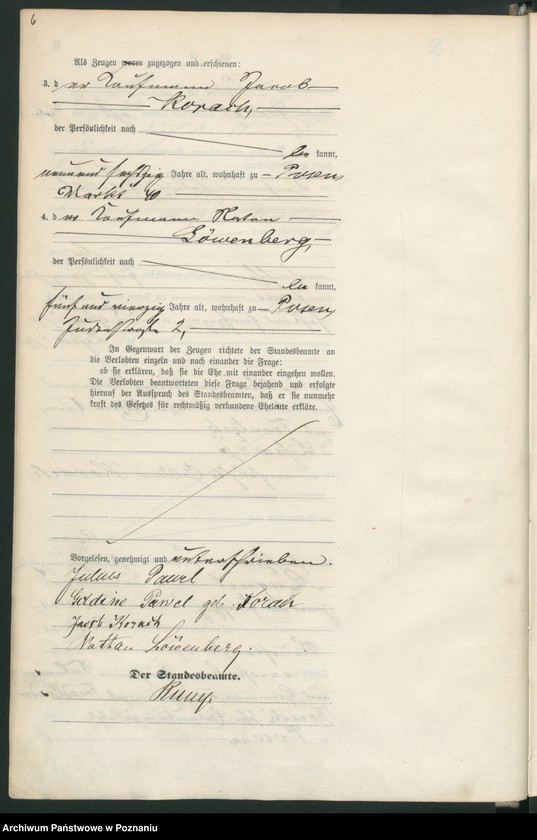 6
Als Zeugen waren zugezogen und erschienen:
3. der Kaufmann Jacob
Korach,
der Persönlichkeit nach
be kannt,
neunundsechzig Jahre alt, wohnhaft zu Posen,
Markt
4. der Kaufmann Natan
Löwenberg,
der Persönlichkeit nach
be kannt,
fünfundvierzig Jahre alt, wohnhaft zu Posen,
Judenstraße 2,
In Gegenwart der Zeugen richtete der Standesbeamte an
die Verlobten einzeln und nach einander die Frage:
ob sie erklären, daß sie die Ehe mit einander eingehen wollen.
Die Verlobten beantworteten diese Frage bejahend und erfolgte
hierauf der Ausspruch des Standesbeamten, daß er sie nunmehr
kraft des Gesetzes für rechtmäßig verbundene Eheleute erkläre.
Vorgelesen, genehmigt und unterschrieben.
Julius
geb. Korach
Jacob Korach
Nathan Löwenberg.
Der Standesbeamte.
Archiwum Państwowe w Poznaniu